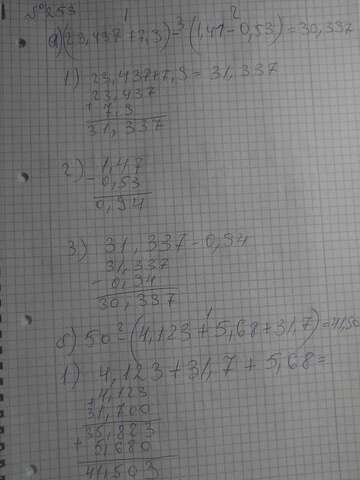 №253
1 3 2
а) (23,437 + 7,9) - (1,47 - 0,53) = 30,337
1) 23,437+7,9 = 31,337
23,437
+ 7,9
31,337
2) - 1,47
0,53
0,94
3) 31,337 - 0,94
31,337
- 0,94
30,337
2 1
б) 50 - (4,123 + 5,68 + 31,7) = 41,50
1) 4,123 + 31,7 + 5,68 =
+ 4,123
31,700
35,823
+ 5,680
41,503